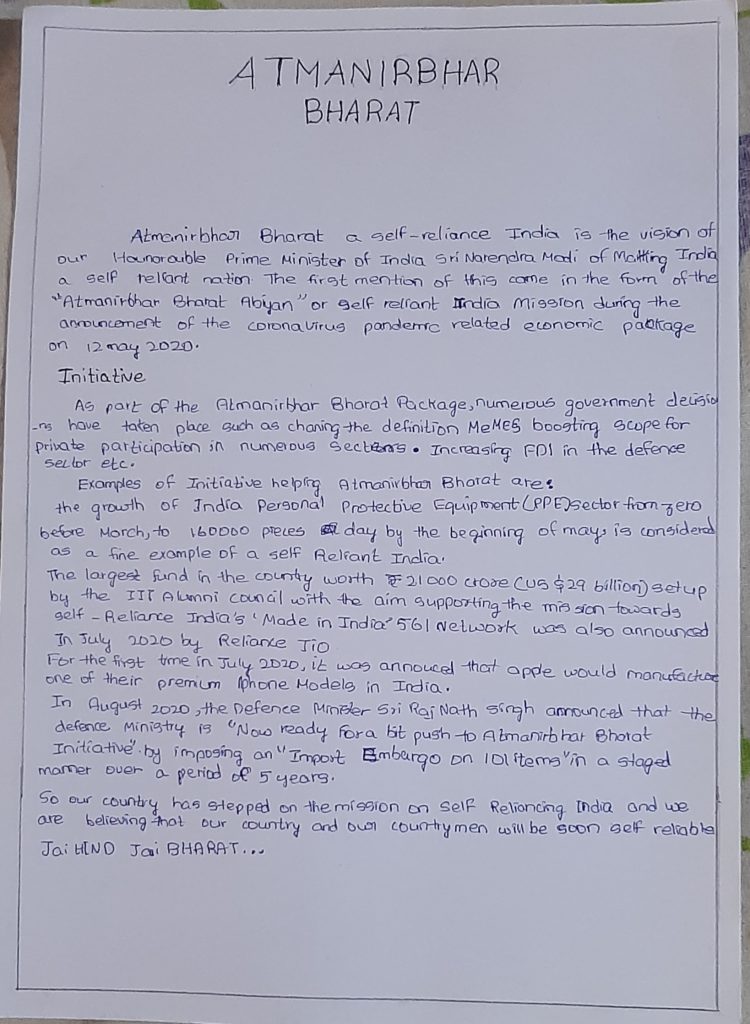 ATMANIRBHAR
BHARAT
Atmanirbhar Bharat a self-reliance India is the vision of
our Hounorauble Prime Minister of India Sri Narendra Modi of Matting India
a self reliant nation. The first mention of this came in the form of the
"Atmanirbhar Bharat Abiyan" or self reliant India Mission during the
announcement of the coronavirus pandemic related economic package
on 12 may 2020.
Initiative
As part of the Atmanirbhar Bharat Package, numerous government decisio
-ns have taten place such as chaning the definition MeMES boosting scope for
private participation in numerous Sections. Increasing FDI in the defence
sector etc.
Examples of Initiative helping Atmanirbhar Bharat are:
the growth of India Personal Protective Equipment (PPE) sector from zero
before March, to 160000 pieces a day by the beginning of may, is considered
as a fine example of a self Reliant India.
The largest fund in the country worth ₹ 21000 crore (US $29 billion) setup
by the IIT Alumni council with the aim supporting the mission towards
self-Reliance India's 'Made in India" 5G Network was also announced
In July 2020 by Reliance Jio
For the first time in July 2020, it was annouced that apple would manufacture
one of their premium Iphone Models in India.
In August 2020, the Defence Minister Sri Raj Nath Singh announced that the
defence Ministry is "Now ready for a bit push to Atmanirbhar Bharat
Initiative" by imposing an "Import Embargo on 101 items" in a staged
manner over a period of 5 years.
So our country has stepped on the mission on Self Reliancing India and we
are believing that our country and our countrymen will be soon self reliable
Jai HIND Jai BHARAT...